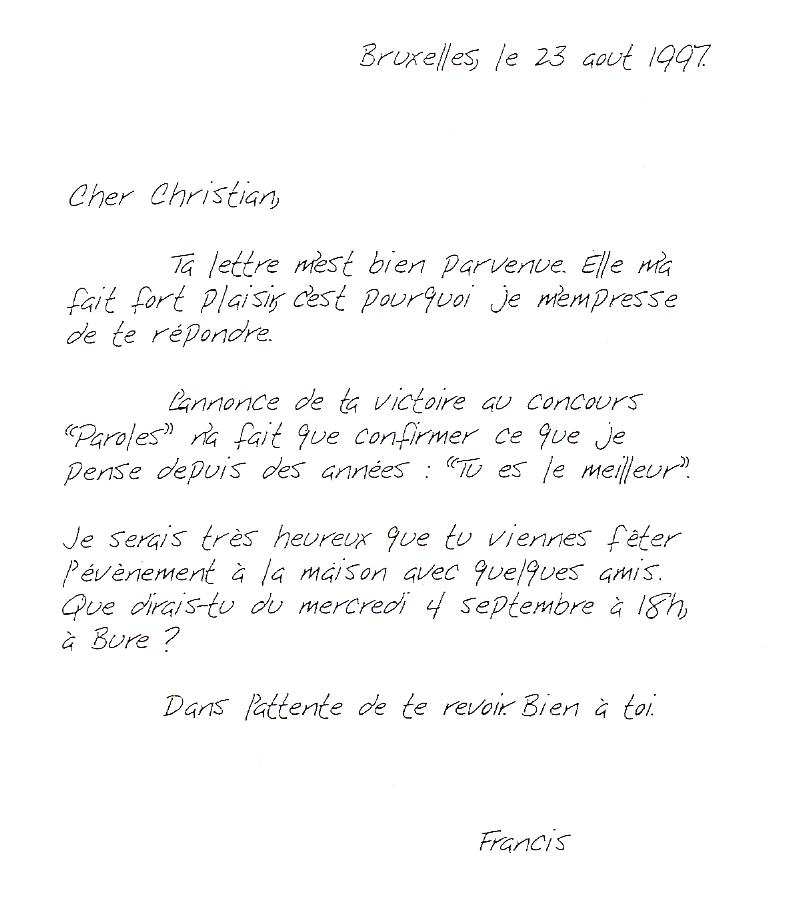 Bruxelles, le 23 aout 1997.
Cher Christian,
Ta lettre m'est bien parvenue. Elle m'a
fait fort plaisir, c'est pourquoi je m'empresse
de te répondre.
L'annonce de ta victoire au concours
"Paroles" n'a fait que confirmer ce que je
pense depuis des années : "Tu es le meilleur".
Je serais très heureux que tu viennes fêter
l'évènement à la maison avec quelques amis.
Que dirais-tu du mercredi 4 septembre à 18h,
à Bure ?
Dans l'attente de te revoir. Bien à toi.
Francis